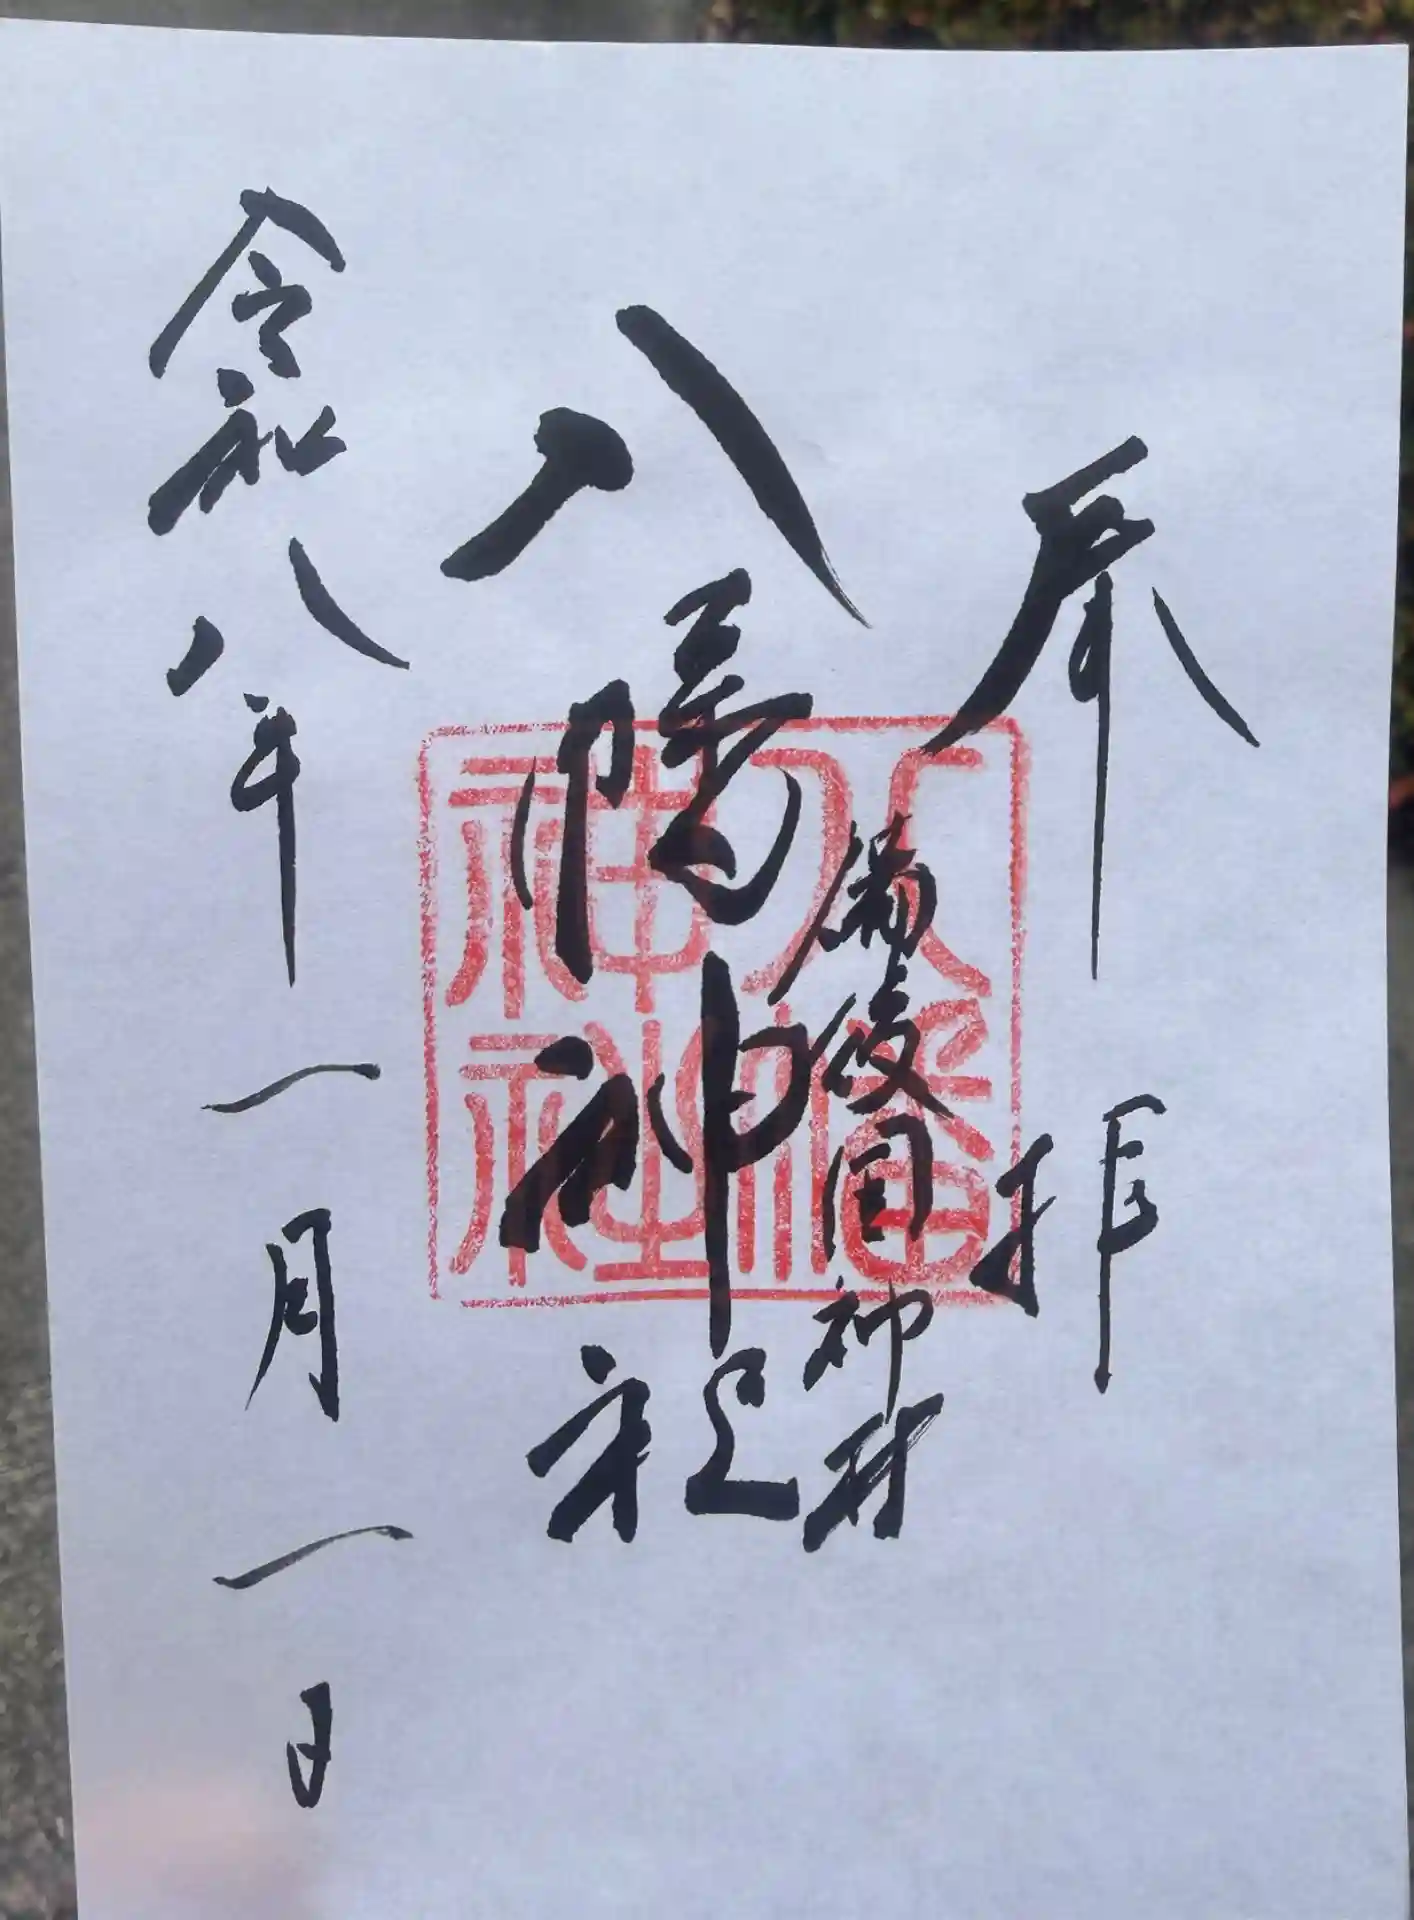 奉拝
備後国神村
八幡神社
八幡神社
令和八年一月一日